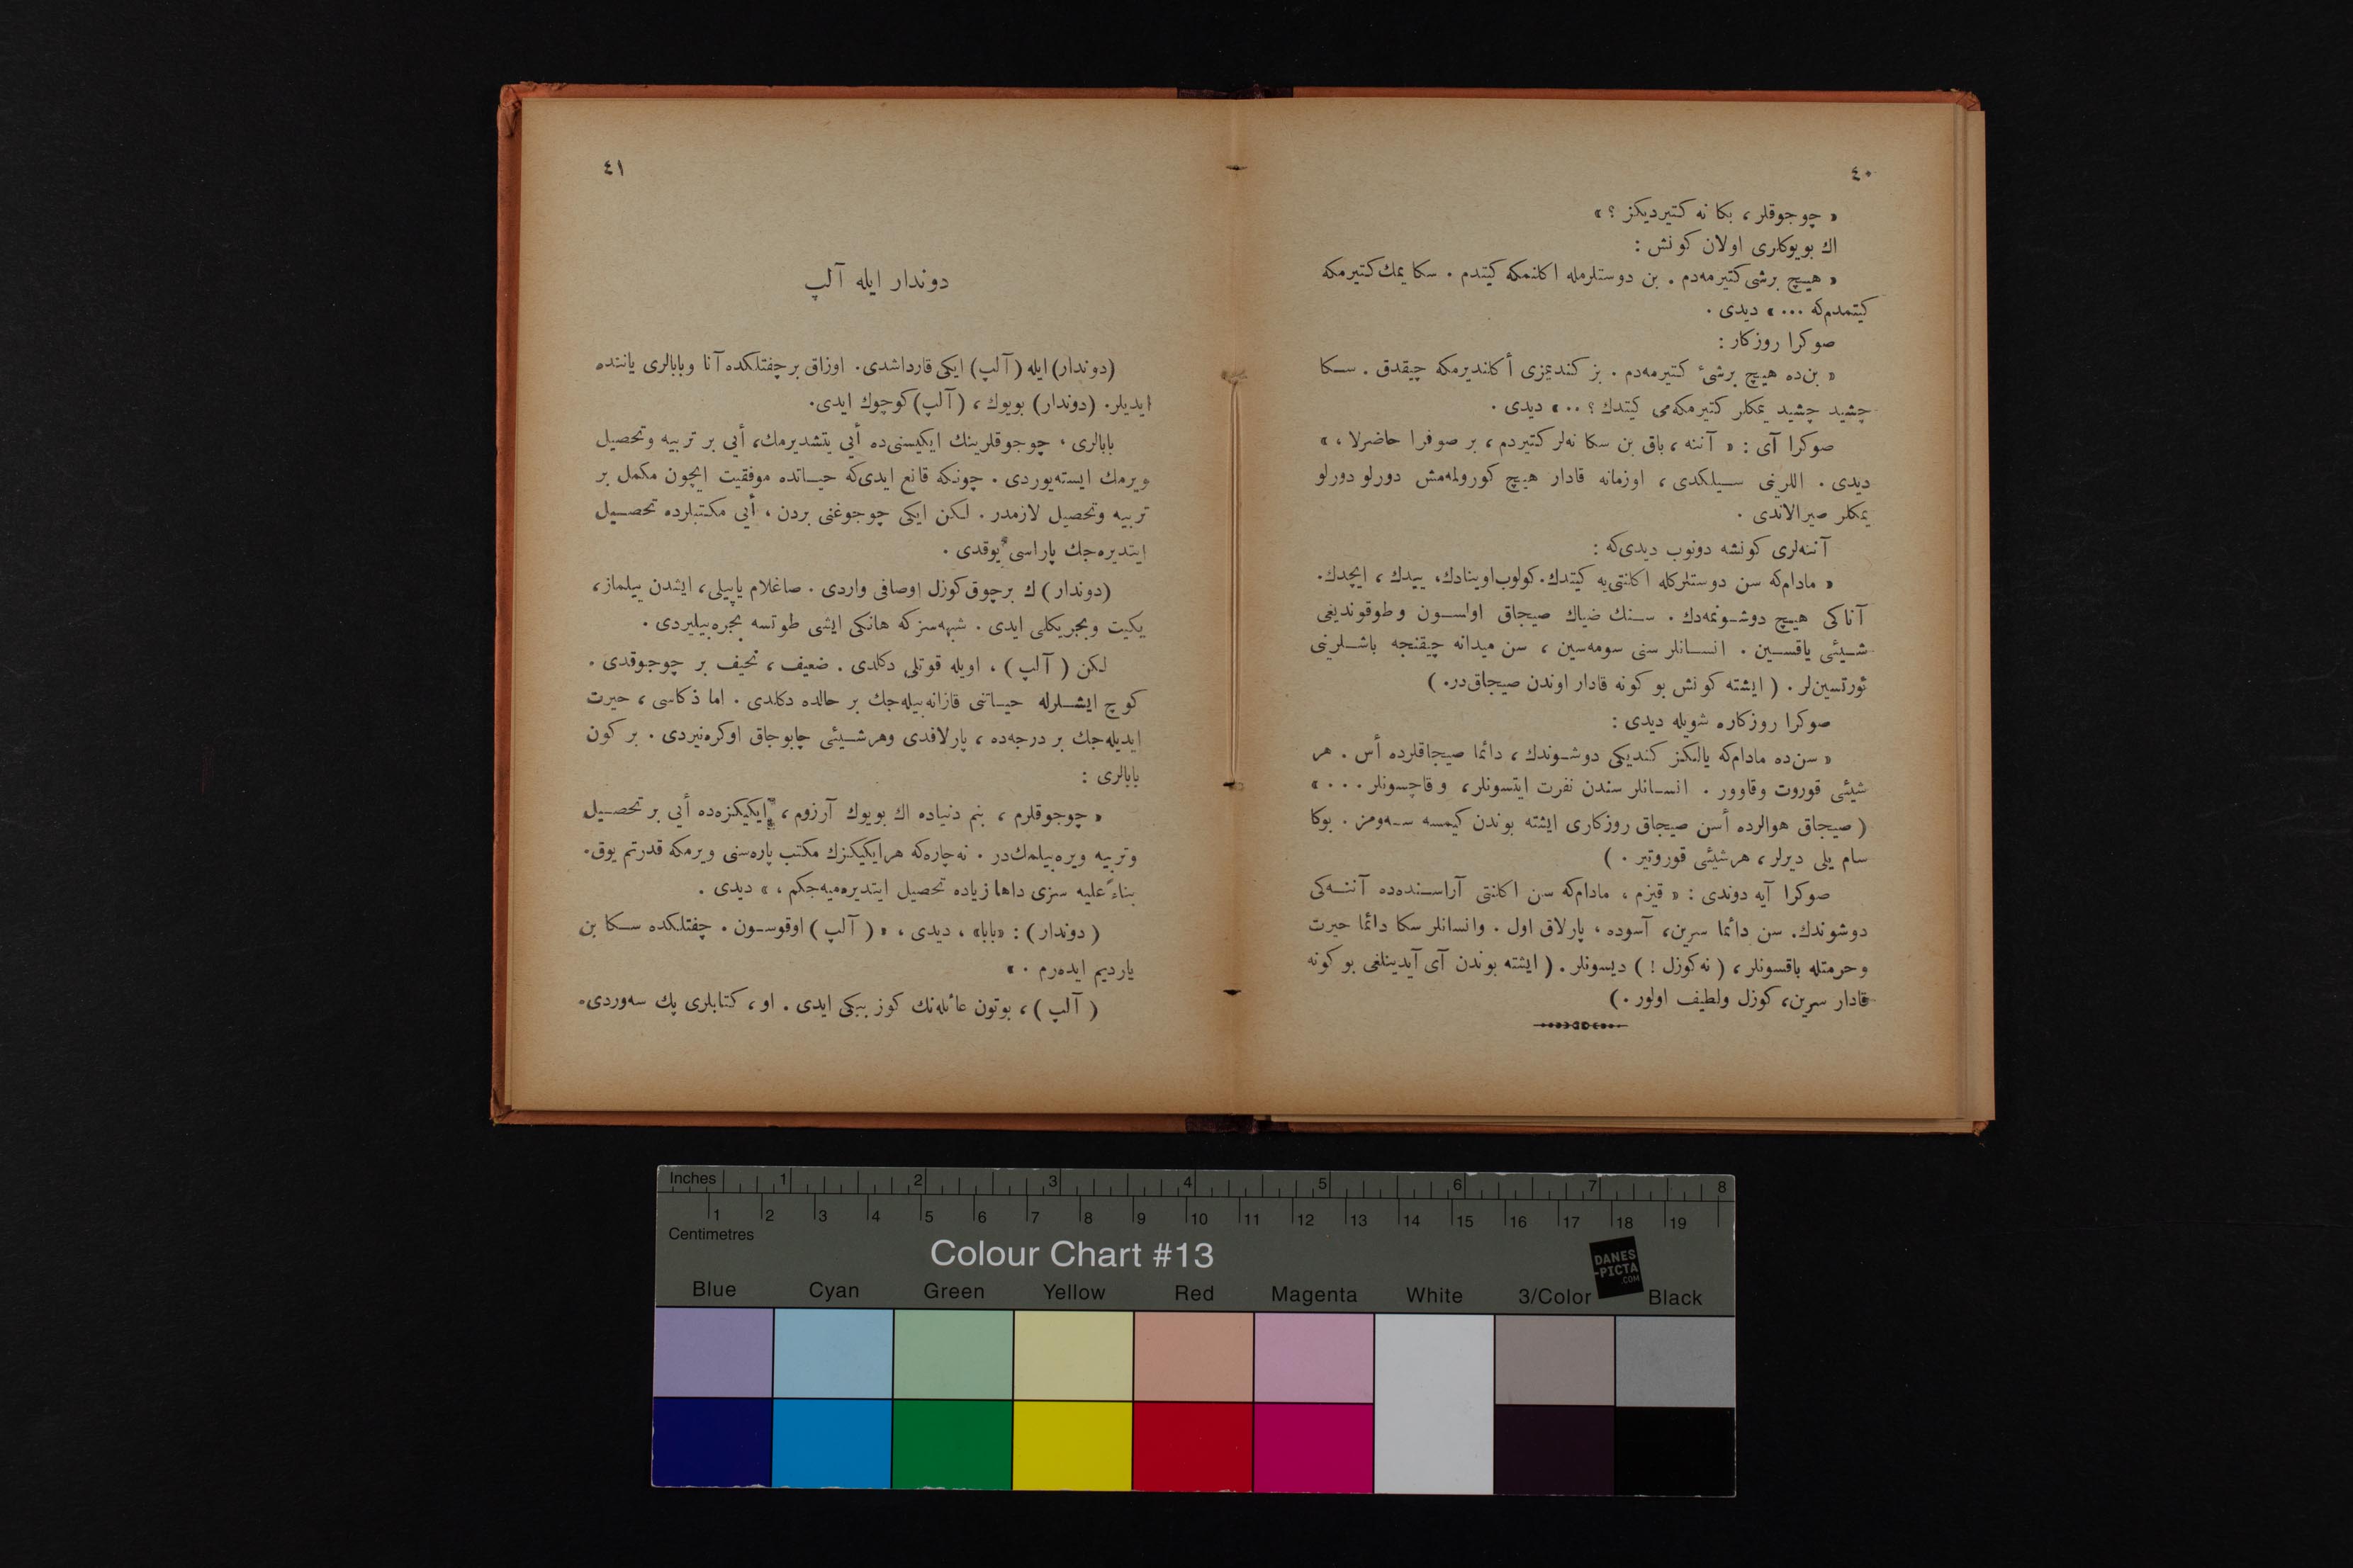 ٤٠
« چوجوقلر ، بكا نه كتيرديكز ؟ »
اك بويوكلرى اولان كونش :
« هيچ برشى كتيرمه‌دم . بن دوستلرمله اكلنمكه كيتدم . سكا يمك كتيرمكه
كيتمدم‌كه ... » ديدى .
صوكرا روزكار :
« بن‌ده هيچ برشىٔ كتيرمه‌دم . بز كنديمزى أكلنديرمكه چيقدق . سكا
چشيد چشيد يمكلر كتيرمكه‌مى كيتدك ؟ .. » ديدى .
صوكرا آى : « آننه ، باق بن سكا نه‌لر كتيردم ، بر صوفرا حاضرلا ، »
ديدى . اللرينى سيلكدى ، اوزمانه قادار هيچ كورولمه‌مش دورلو دورلو
يمكلر صيرالاندى .
آننه‌لرى كونشه دونوب ديدى‌كه :
« مادام‌كه سن دوستلركله اكلنتى‌يه كيتدك. كولوب‌اوينادك، ييدك ، ايچدك.
آناكى هيچ دوشونمه‌دك . سنك ضياك صيجاق اولسون وطوقونديغى
شيئى ياقسين . انسانلر سنى سومه‌سين ، سن ميدانه چيقنجه باشلرينى
ئورتسين‌لر . ( ايشته كونش بو كونه قادار اوندن صيجاق‌در. )
صوكرا روزكاره شويله ديدى :
« سن‌ده مادام‌كه يالكز كنديكى دوشوندك ، دائما صيجاقلرده أس . هر
شيئى قوروت وقاوور . انسانلر سندن نفرت ايتسونلر، وقاچسونلر . . . »
( صيجاق هوالرده أسن صيجاق روزكارى ايشته بوندن كيمسه سه‌ومز . بوكا
سام يلى ديرلر ، هرشيئى قوروتير . )
صوكرا آيه دوندى : « قيزم ، مادام‌كه سن اكلنتى آراسنده‌ده آننه‌كى
دوشوندك. سن دائما سرين، آسوده ، پارلاق اول . وانسانلر سكا دائما حيرت
وحرمتله باقسونلر ، ( نه‌كوزل ! ) ديسونلر . ( ايشته بوندن آى آيدينلغى بو كونه
قادار سرين، كوزل ولطيف اولور . )
٤١
دوندار ايله آلپ
(دوندار) ايله (آلپ) ايكى قارداشدى. اوزاق برچفتلكده آنا وبابالرى ياننده
ايديلر. (دوندار) بويوك ، (آلپ) كوچوك ايدى.
بابالرى ، چوجوقلرينك ايكيسنى‌ده أيى يتشديرمك، أيى بر تربيه وتحصيل
ويرمك ايسته‌يوردى . چونكه قانع ايدى‌كه حياتده موفقيت ايچون مكمل بر
تربيه وتحصيل لازمدر . لكن ايكى چوجوغنى بردن ، أيى مكتبلرده تحصيل
ايتديره‌جك پاراسى يوقدى .
(دوندار) ك برچوق كوزل اوصافى واردى . صاغلام ياپيلى ، ايشدن ييلماز،
يكيت وبجريكلى ايدى . شبهه‌سزكه هانكى ايشى طوتسه بجره‌بيليردى .
لكن ( آلپ ) ، اويله قوتلى دكلدى . ضعيف ، نحيف بر چوجوقدى .
كوچ ايشلرله حياتنى قازانه‌بيله‌جك بر حالده دكلدى . اما ذكاسى ، حيرت
ايديله‌جك بر درجه‌ده ، پارلاقدى وهرشيئى چابوجاق اوكره‌نيردى . بر كون
بابالرى :
« چوجوقلرم ، بنم دنياده اك بويوك آرزوم ، ايكيكزه‌ده أيى بر تحصيل
وتربيه ويره‌بيلمك‌در . نه‌چاره‌كه هرايكيكزك مكتب پاره‌سنى ويرمكه قدرتم يوق.
بناءً عليه سزى داها زياده تحصيل ايتديره‌ميه‌جكم ، » ديدى .
( دوندار ) : «بابا» ، ديدى ، « ( آلپ ) اوقوسون . چفتلكده سكا بن
يارديم ايده‌رم . »
( آلپ ) ، بوتون عائله‌نك كوز ببكى ايدى . او ، كتابلرى پك سه‌وردى.
Inches 1 2 3 4 5 6 7 8
1 2 3 4 5 6 7 8 9 10 11 12 13 14 15 16 17 18 19
Centimetres
Colour Chart #13
DANES
-PICTA
.COM
Blue Cyan Green Yellow Red Magenta White 3/Color Black